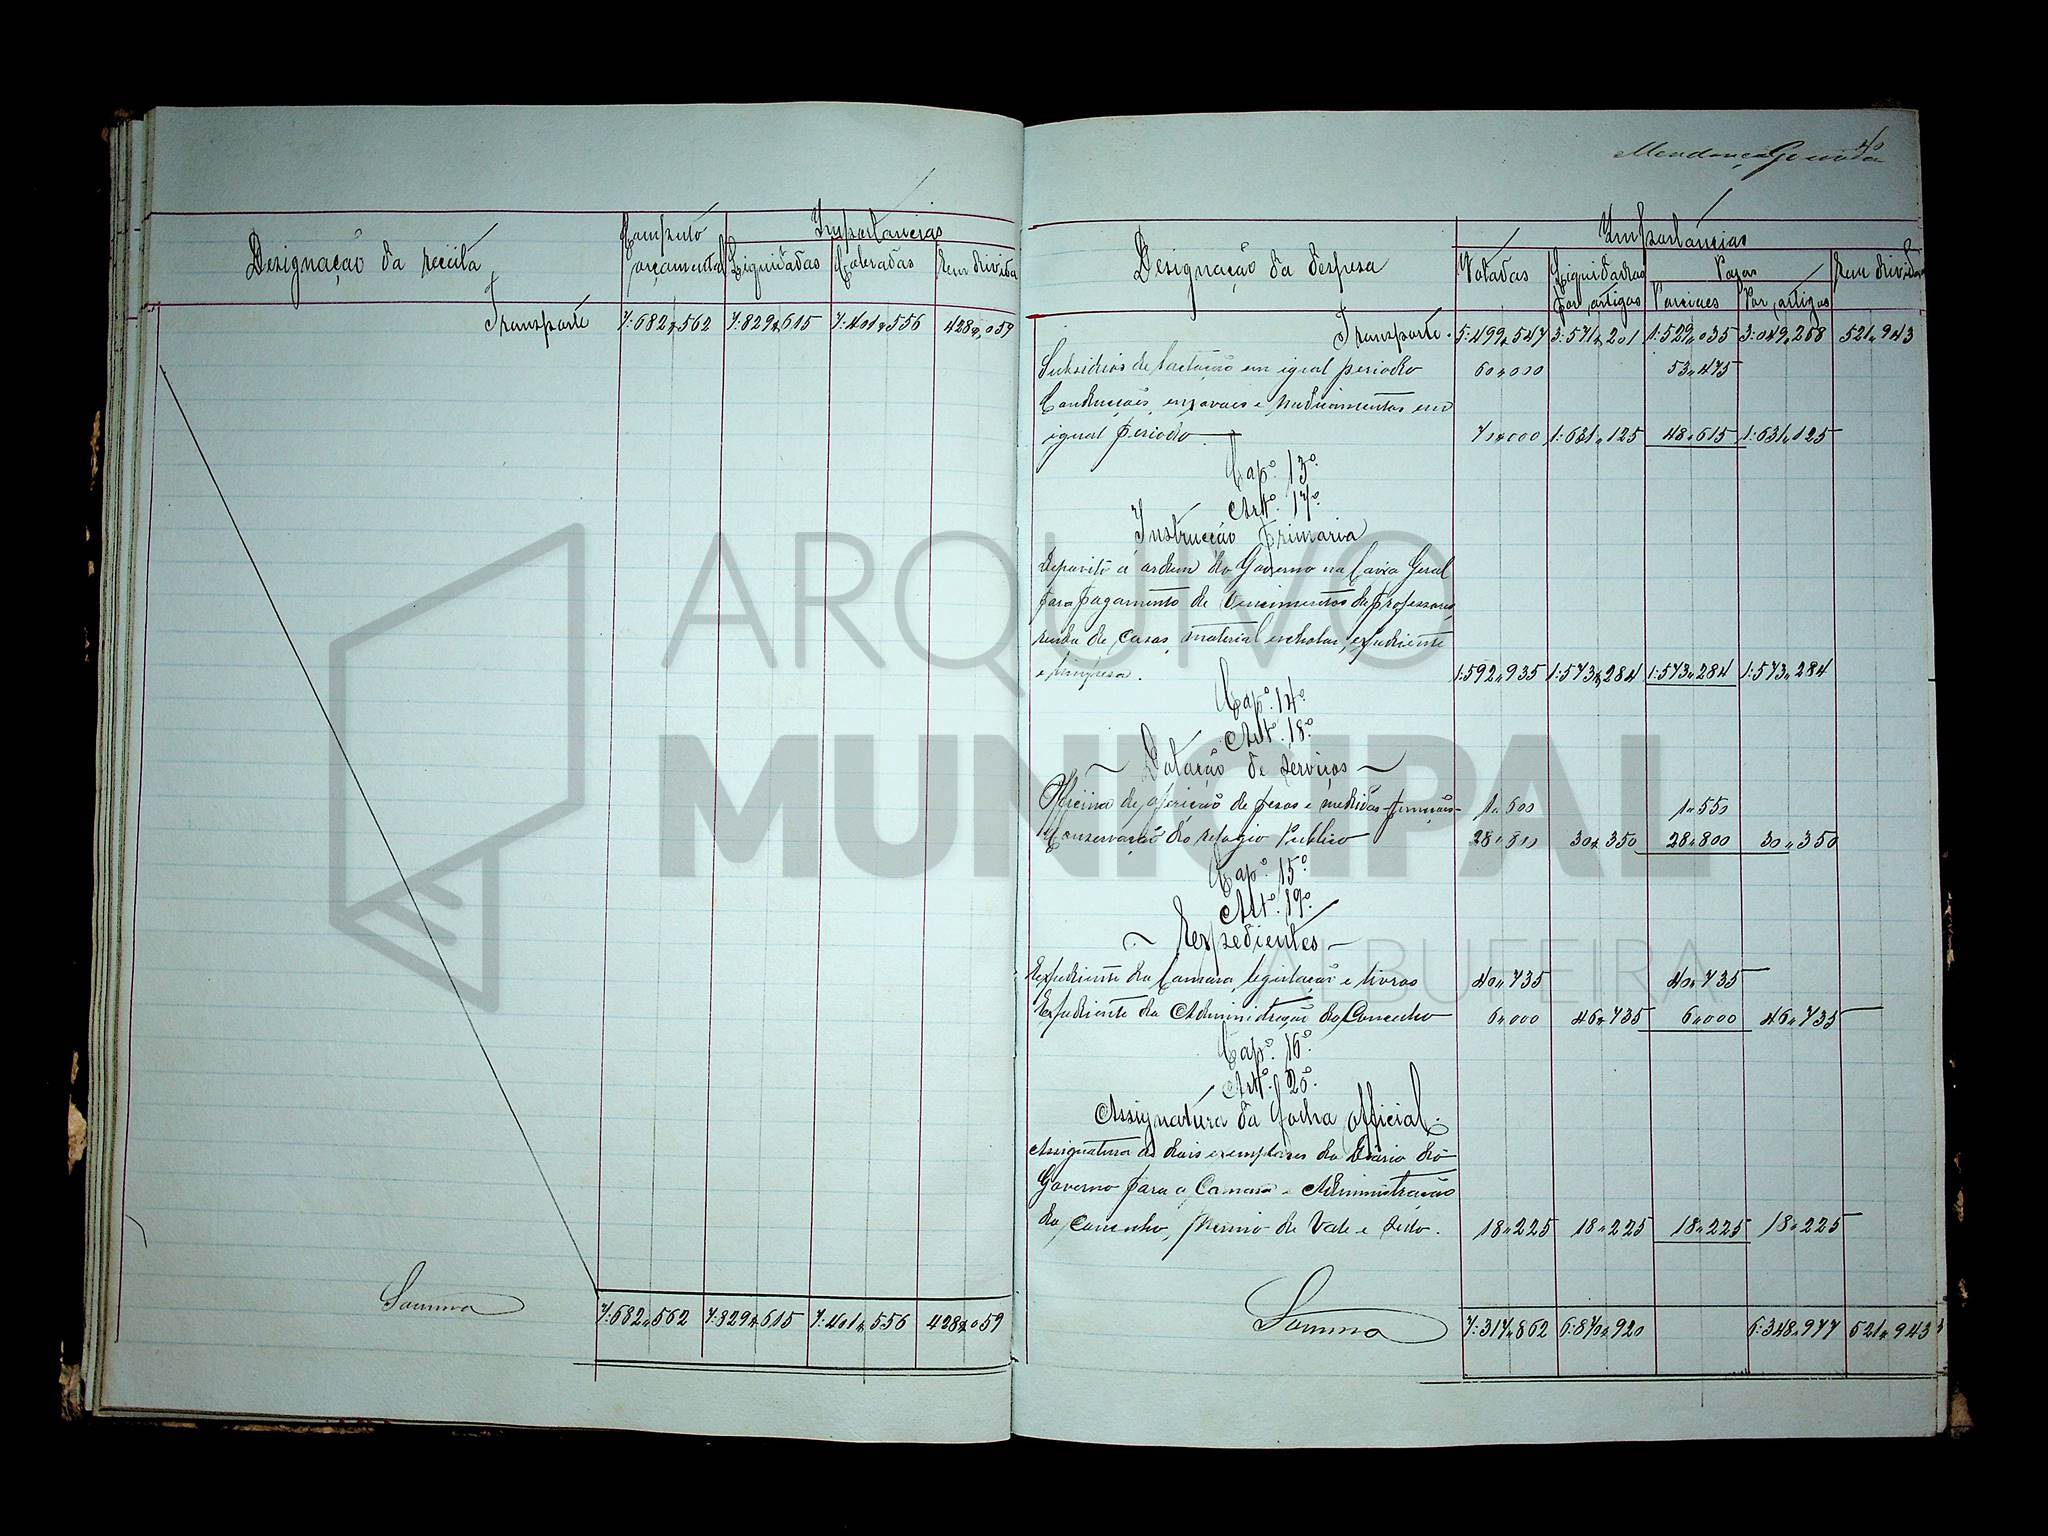 Designação da receita
Computo
orçamental
Importancias
Liquidadas
Cobradas
Em divida
Transporte 7:682,562 7:829,615 7:401,556 428,059
Somma 7:682,562 7:829,615 7:401,556 428,059
40
Mendonça Gouvêa
Designação da despesa
Importancias
Votadas
Liquidadas
por artigos
Pagas
Parciaes
Por artigos
Em divida
Transporte. 5:499,547 3:571,201 1:529,035 3:049,258 521,943
Subsidios de lactação em igual periodo 60,000 53,475
Conducções, enxovaes e medicamentos em
igual periodo 70,000 1:631,125 48,615 1:631,125
Cap.º 13º.
Artº. 17º.
Instrucção primaria
Deposito á ordem do Governo na Caixa Geral
para pagamento de vencimentos de professores,
renda de casas, material escholar, expediente
e limpesa. 1:592,935 1:573,284 1:573,284 1:573,284
Cap.º 14º.
Artº. 18º.
Dotação de serviços
Officina de aferição de pesos e medidas 1,600 1,550
Conservação do relogio Publico 28,800 30,350 28,800 30,350
Cap.º 15º.
Artº. 19º.
Expedientes
Expediente da Camara, legislação e livros 40,735 40,735
Expediente da Administração do Concelho 6,000 46,735 6,000 46,735
Cap.º 16º.
Artº. 20º.
Assignatura da folha official.
Assignatura de dois exemplares do Diario do
Governo para a Camara e Administração
do Concelho, premio de vale e sello. 18,225 18,225 18,225 18,225
Somma 7:317,862 6:870,920 6:348,977 521,943
ARQUIVO
MUNICIPAL
ALBUFEIRA